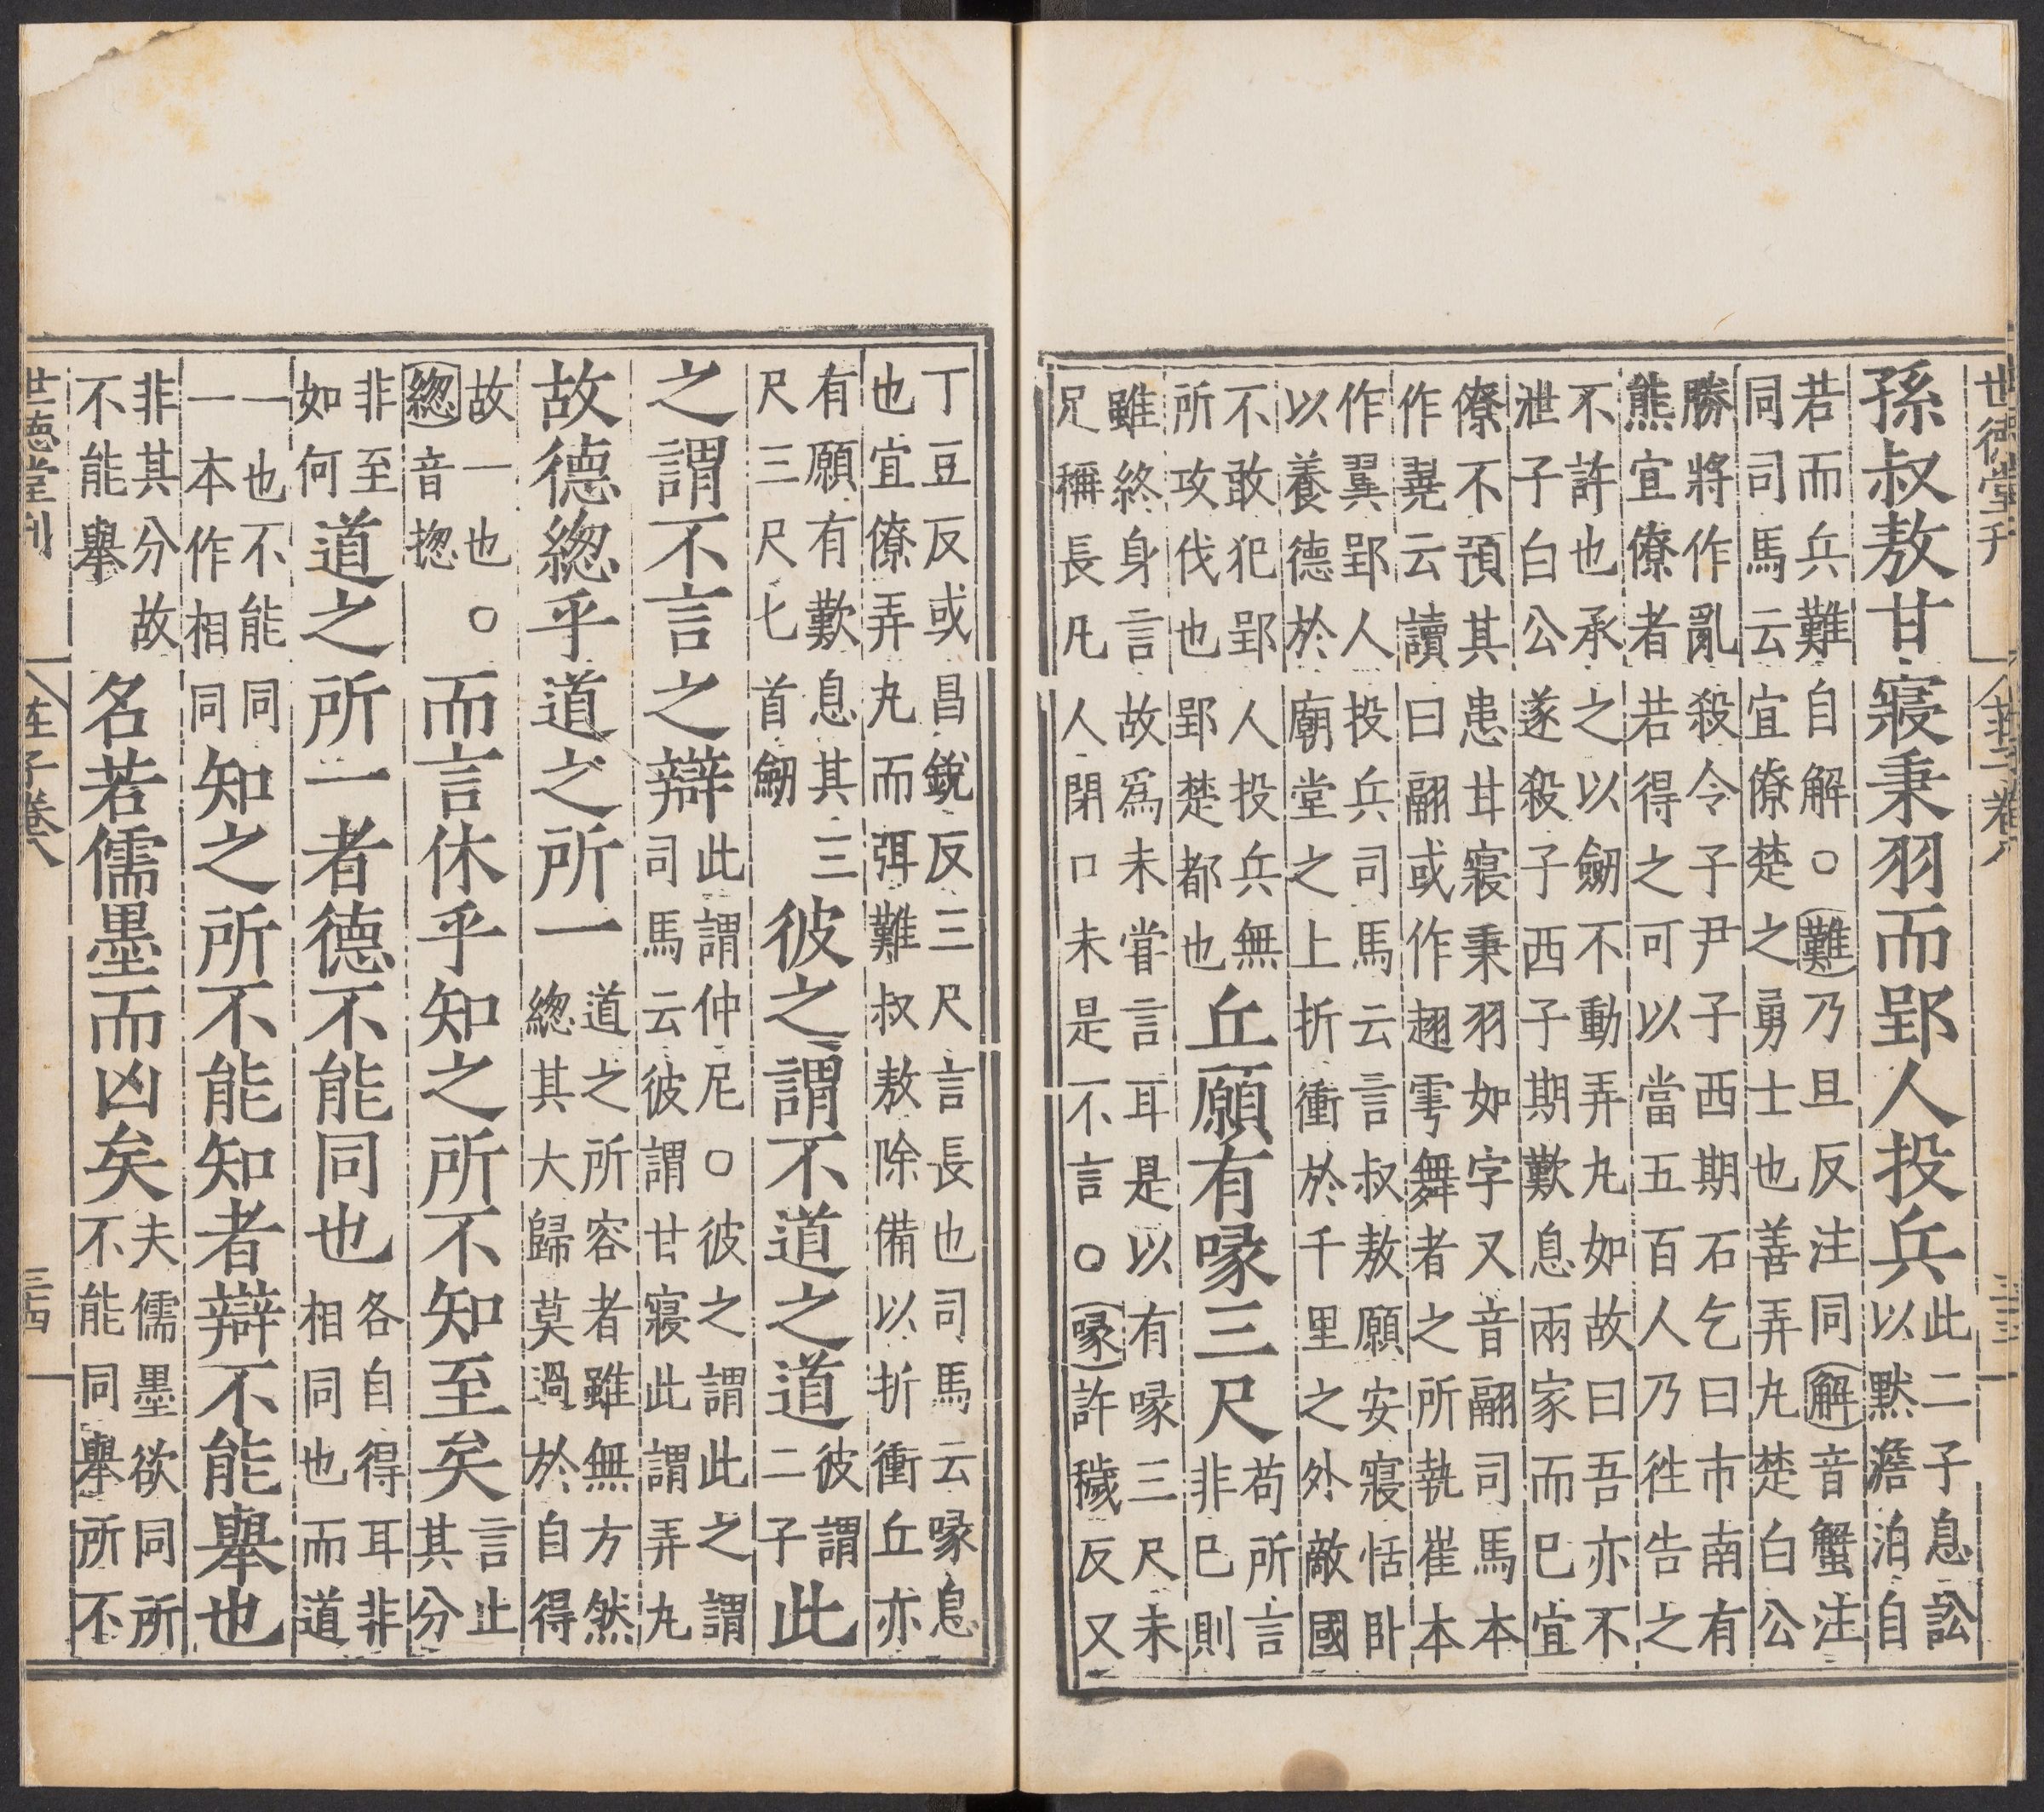 世德堂刊 莊子卷八 三十三
孫叔敖甘寢秉羽而郢人投兵
此二子息訟
以默澹泊自
若而兵難自解○難乃且反注同解音蟹注
同司馬云宜僚楚之勇士也善弄丸楚白公
勝將作亂殺令子尹子西期石乞曰市南有
熊宜僚者若得之可以當五百人乃徃告之
不許也承之以劒不動弄丸如故曰吾亦不
泄子白公遂殺子西子期歎息兩家而巳宜
僚不預其患甘寢秉羽如字又音翮司馬本
作云讀曰翮或作翅雩舞者之所執崔本
作翼郢人投兵司馬云言叔敖願安寢恬卧
以養德於廟堂之上折衝於千里之外敵國
不敢犯郢人投兵無
所攻伐也郢楚都也
丘願有喙三尺
苟所言
非巳則
雖終身言故爲未嘗言耳是以有喙三尺未
足稱長凡人閉口未是不言○喙許穢反又
丁豆反或昌銳反三尺言長也司馬云喙息
也宜僚弄丸而弭難叔敖除備以折衝丘亦
有願有歎息其三
尺三尺匕首劒
彼之謂不道之道
彼謂
二子
此
之謂不言之辯
此謂仲尼○彼之謂此之謂
司馬云彼謂甘寢此謂弄丸
故德緫乎道之所一
道之所容者雖無方然
緫其大歸莫過於自得
故一也○
緫音揔
而言休乎知之所不知至矣
言止
其分
非至
如何
道之所一者德不能同也
各自得耳非
相同也而道
一也不能同
一本作相同
知之所不能知者辯不能舉也
非其分故
不能舉
名若儒墨而凶矣
夫儒墨欲同所
不能同舉所不
世德堂刊 莊子卷八 三十四